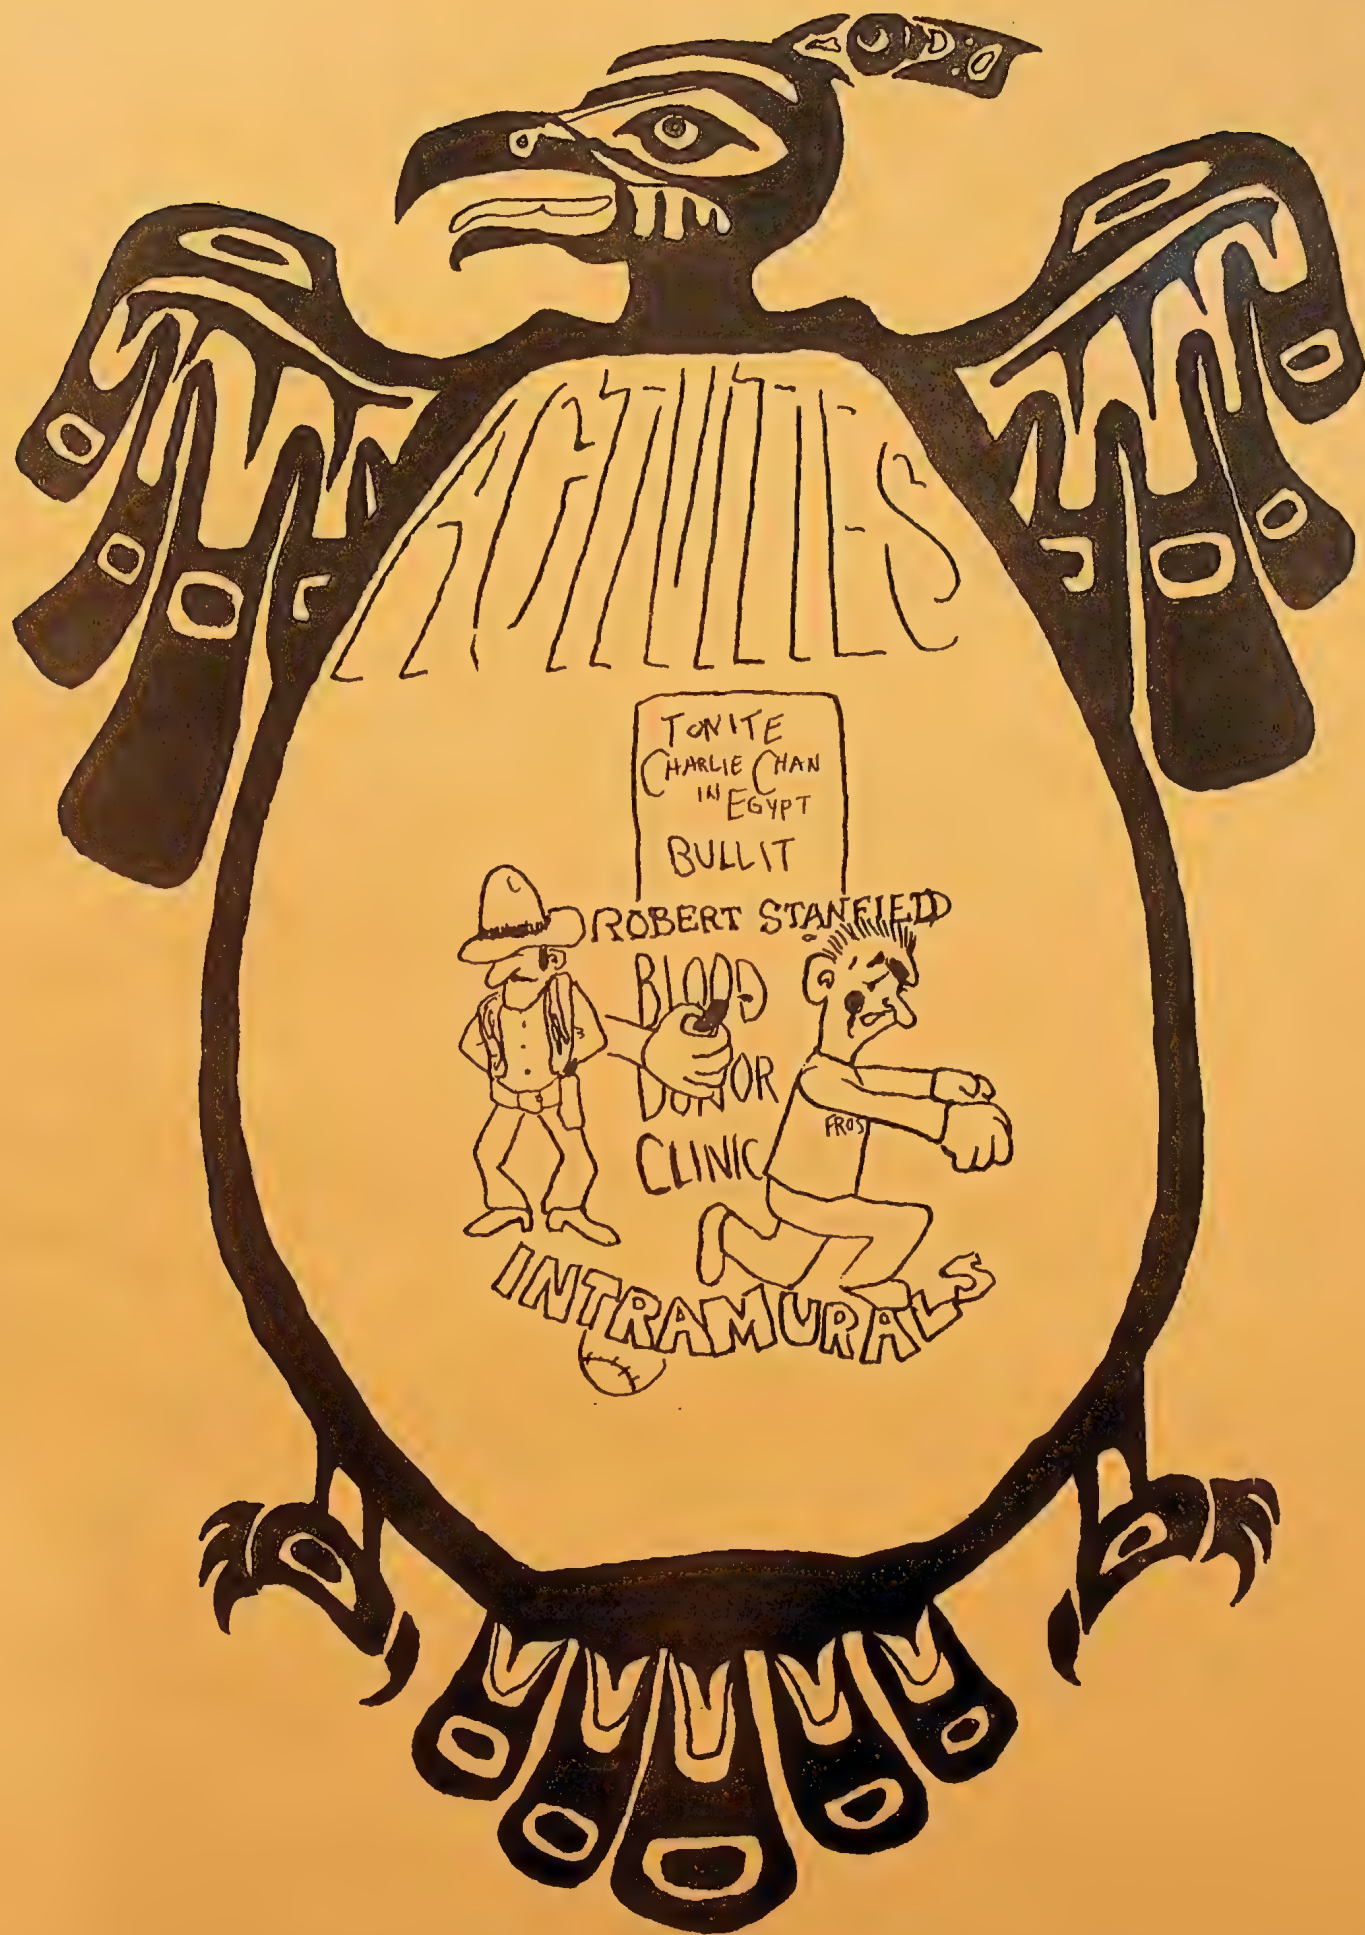 ACTIVITIES
TONITE
CHARLIE CHAN
IN EGYPT
BULLIT
ROBERT STANFIELD
BLOOD
DONOR
CLINIC
FROS
INTRAMURALS